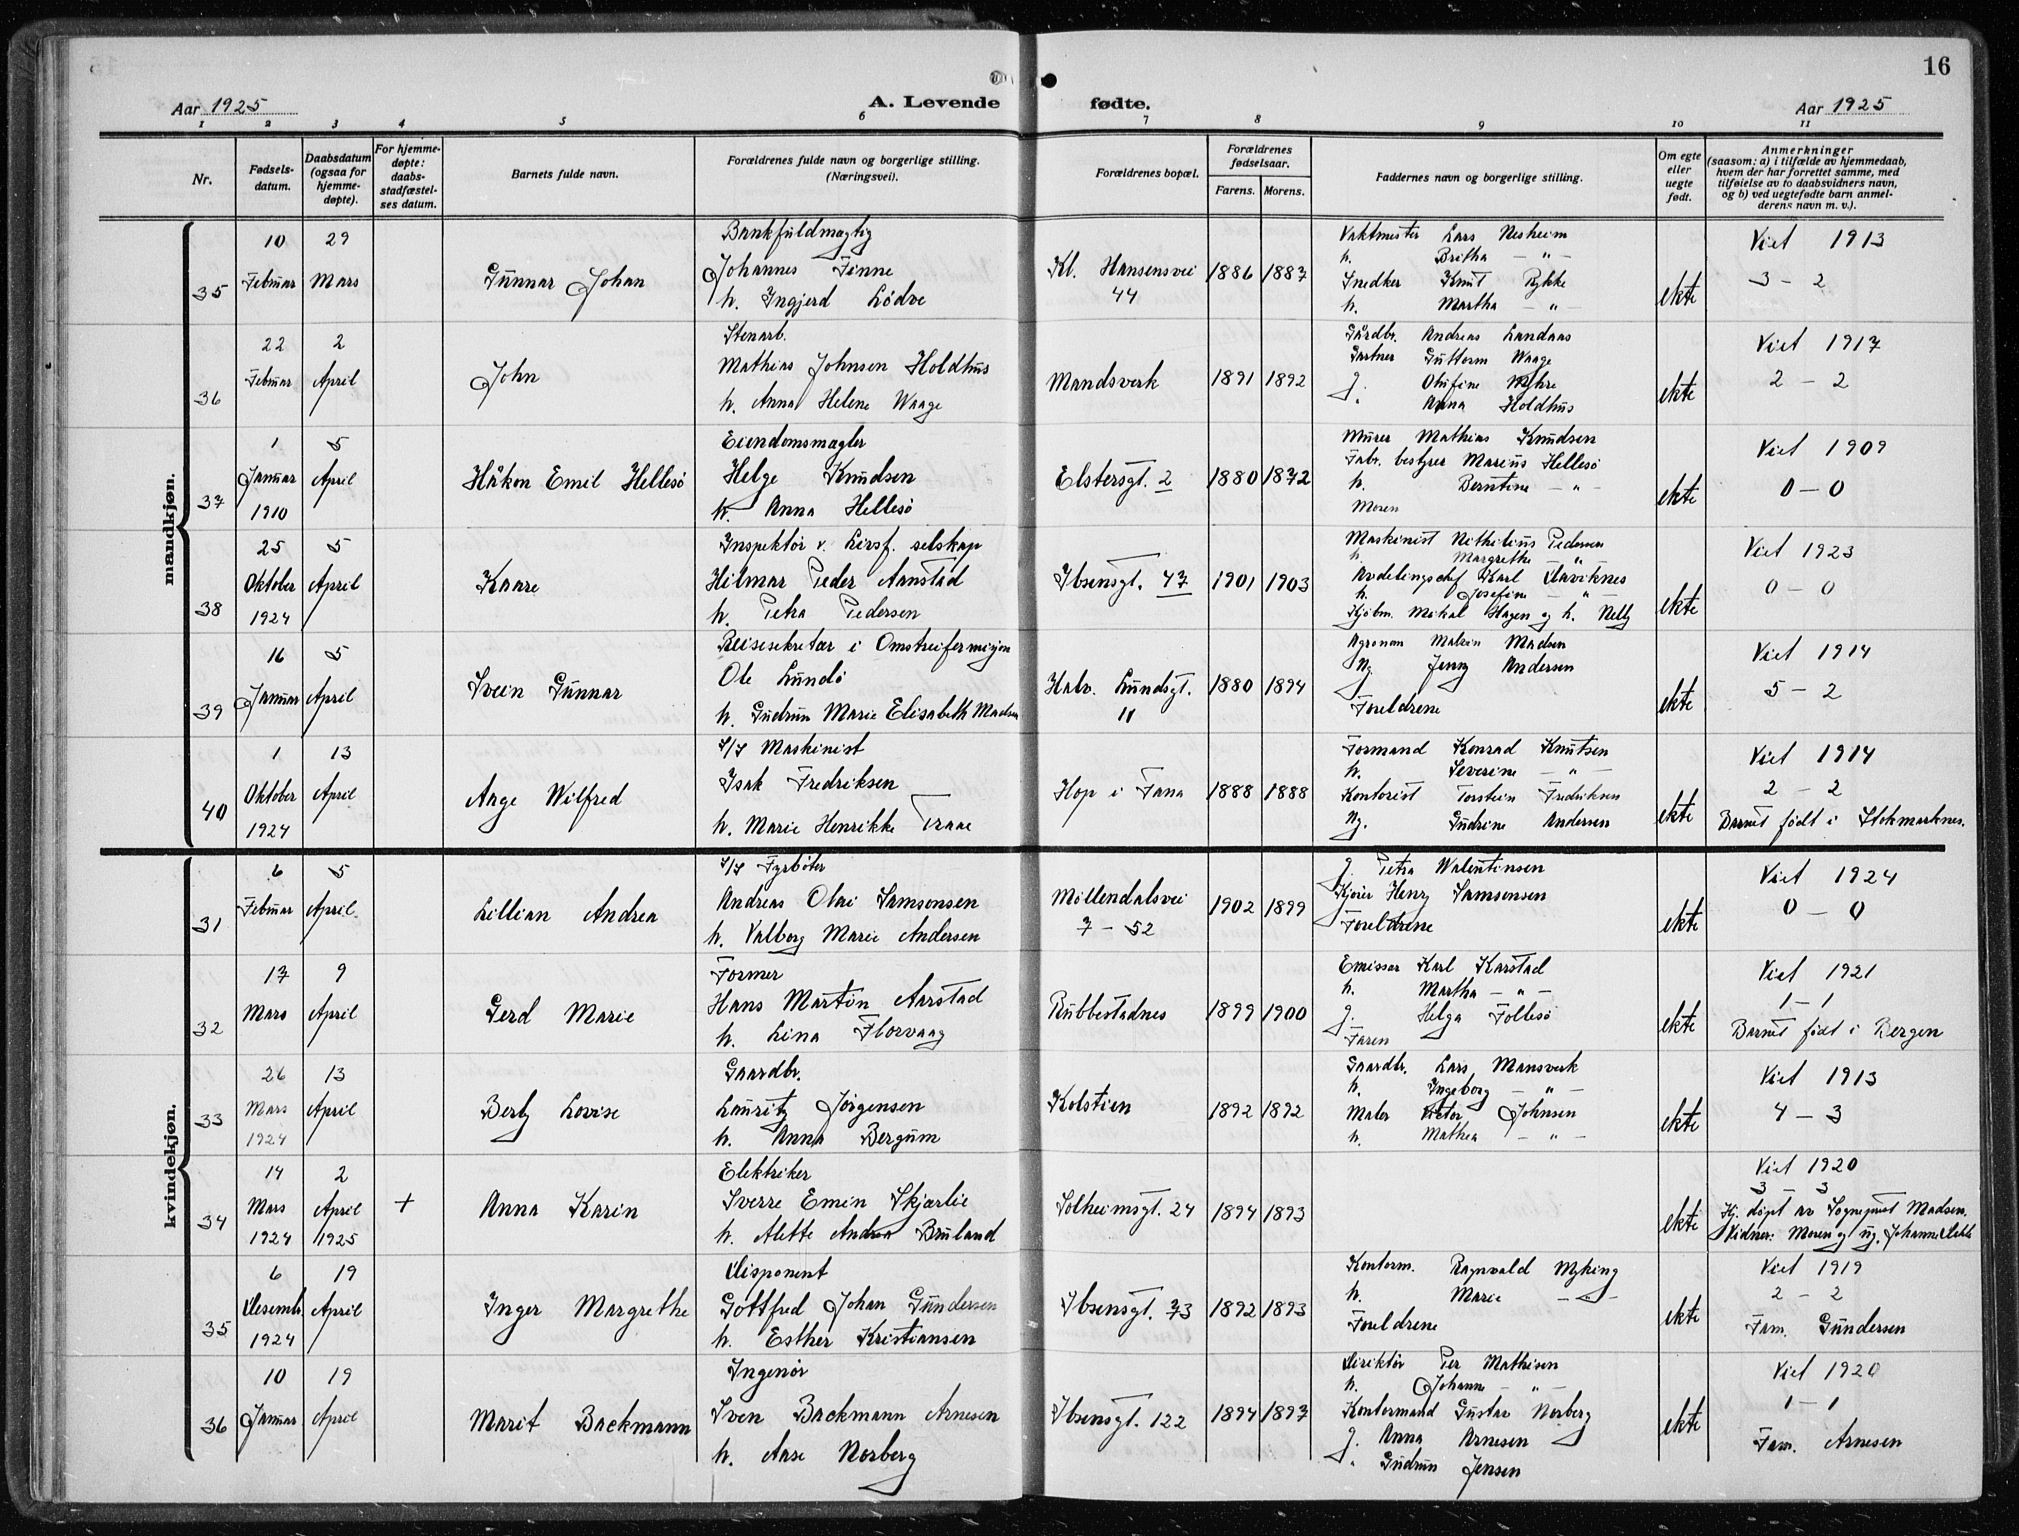 16
Aar 1925
A. Levende fødte.
Aar 1925
1 2 3 4 5 6 7 8 9 10 11
Nr.
Fødsels-
datum.
Daabsdatum
(ogsaa for
hjemme-
døpte).
For hjemme-
døpte:
daabs-
stadfæstel-
ses datum.
Barnets fulde navn.
Forældrenes fulde navn og borgerlige stilling.
(Næringsvei).
Forældrenes bopæl.
Forældrenes
fødselsaar.
Farens. Morens.
Faddernes navn og borgerlige stilling.
Om egte
eller
uegte
født.
Anmerkninger
(saasom: a) i tilfælde av hjemmedaab,
hvem der har forrettet samme, med
tilføielse av to daabsvidners navn,
og b) ved uegtefødte barn anmel-
derens navn m. v.).
mandkjøn.
35
10
Februar
29
Mars
Gunnar Johan
Bankfuldmægtig
Johannes Finne
h. Ingjerd Lødve
Kl. Hansensvei
44
1886 1887
Vaktmester Lars Nesheim
h. Britha — " —
Snedker Knut Rykke
h. Martha — " —
ekte
Viet 1913
3 – 2
36
22
Februar
2
April
John
Stenarb.
Mathias Johnsen Holdhus
h. Anna Helene Waage
Mandsverk
1891 1892
Gårdbr. Andreas Landaas
Gartner Guttorm Waage
g. Olufine Myhre
" Anna Holdhus
ekte
Viet 1917
2 – 2
37
1
Januar
1910
5
April
Håkon Emil Hellesø
Eiendomsmagler
Helge Knudsen
h. Anna Hellesø
Elstersgt. 2
1880 1872
Murer Mathias Knudsen
Fabr. bestyrer Marius Hellesø
h. Berntine — " —
Moren
ekte
Viet 1909
0 – 0
38
25
Oktober
1924
5
April
Kaare
Inspektør v. Livsf. selskap
Hilmar Peder Aarstad
h. Petra Pedersen
Ibsensgt. 47
1901 1903
Maskinist Pedersen
h. Margrethe — " —
Avdelingschef Karl
h. Josefine — " —
Kjøbm. Mikal Hagen og h. Nelly
ekte
Viet 1923
0 – 0
39
16
Januar
5
April
Svein Gunnar
Reisesekretær i Omstreifermisjon
Ole Lundø
h. Gudrun Marie Elisabeth Madsen
Halv. Lundsgt.
11
1880 1894
Agronom Malvin Madsen
Ug. Jenny Andersen
Foreldrene
ekte
Viet 1914
5 – 2
40
1
Oktober
1924
13
April
Aage Wilfred
S/S Maskinist
Isak Fredriksen
h. Marie Henrikke Traae
Hop i Fana
1888 1888
Formand Konrad Knutsen
h. Severine — " —
Kontorist Torstein Fredriksen
Ug. Gudrine Andersen
ekte
Viet 1914
2 – 2
Barnet født i Stokmarknes.
kvindekjøn.
31
6
Februar
5
April
Lillian Andrea
S/S Fyrbøter
Andreas Olai Samsonsen
h. Valborg Marie Andersen
Møllendalsvei
7 – 52
1902 1899
g. Petra Valentinsen
Kjører Henry Samsonsen
Foreldrene
ekte
Viet 1924
0 – 0
32
17
Mars
9
April
Gerd Marie
Former
Hans Martin Aarstad
h. Lina Florvaag
Rubbestadnes
1899 1900
Emissær Karl Karstad
h. Martha — " —
g. Helga Follesø
Faren
ekte
Viet 1921
1 – 1
Barnet født i Bergen
33
26
Mars
1924
13
April
Berly Lovise
Gaardbr.
Lauritz Jørgensen
h. Anna Bergum
Kolstien
1892 1892
Gaardbr. Lars Mansverk
h. Ingeborg — " —
Maler Victor Johnsen
h. Mathea — " —
ekte
Viet 1913
4 – 3
34
14
Mars
1924
2
April
1925
+
Anna Karin
Elektriker
Sverre Emin Skjærlie
h. Alette Andrea Bruland
Solheimsgt. 24
1894 1893
ekte
Viet 1920
3 – 3
Hj. døpt av Sogneprest Madsen.
Vidner: Moren og ug. Johanne
35
6
Desemb.
1924
19
April
Inger Margrethe
Disponent
Gottfred Johan Gundersen
h. Esther Kristiansen
Ibsensgt. 73
1892 1893
Kontorm. Ragnvald Myking
h. Marie — " —
Foreldrene
ekte
Viet 1919
2 – 2
Fam. Gundersen
36
10
Januar
19
April
Marit Backmann
Ingeniør
Sven Backmann Arnesen
h. Aase Norberg
Ibsensgt. 122
1894 1897
Direktør Per Mathisen
h. Johanne — " —
Kontormand Gustav Norberg
g. Anna Arnesen
" Gudrun Jensen
ekte
Viet 1920
1 – 1
Fam. Arnesen